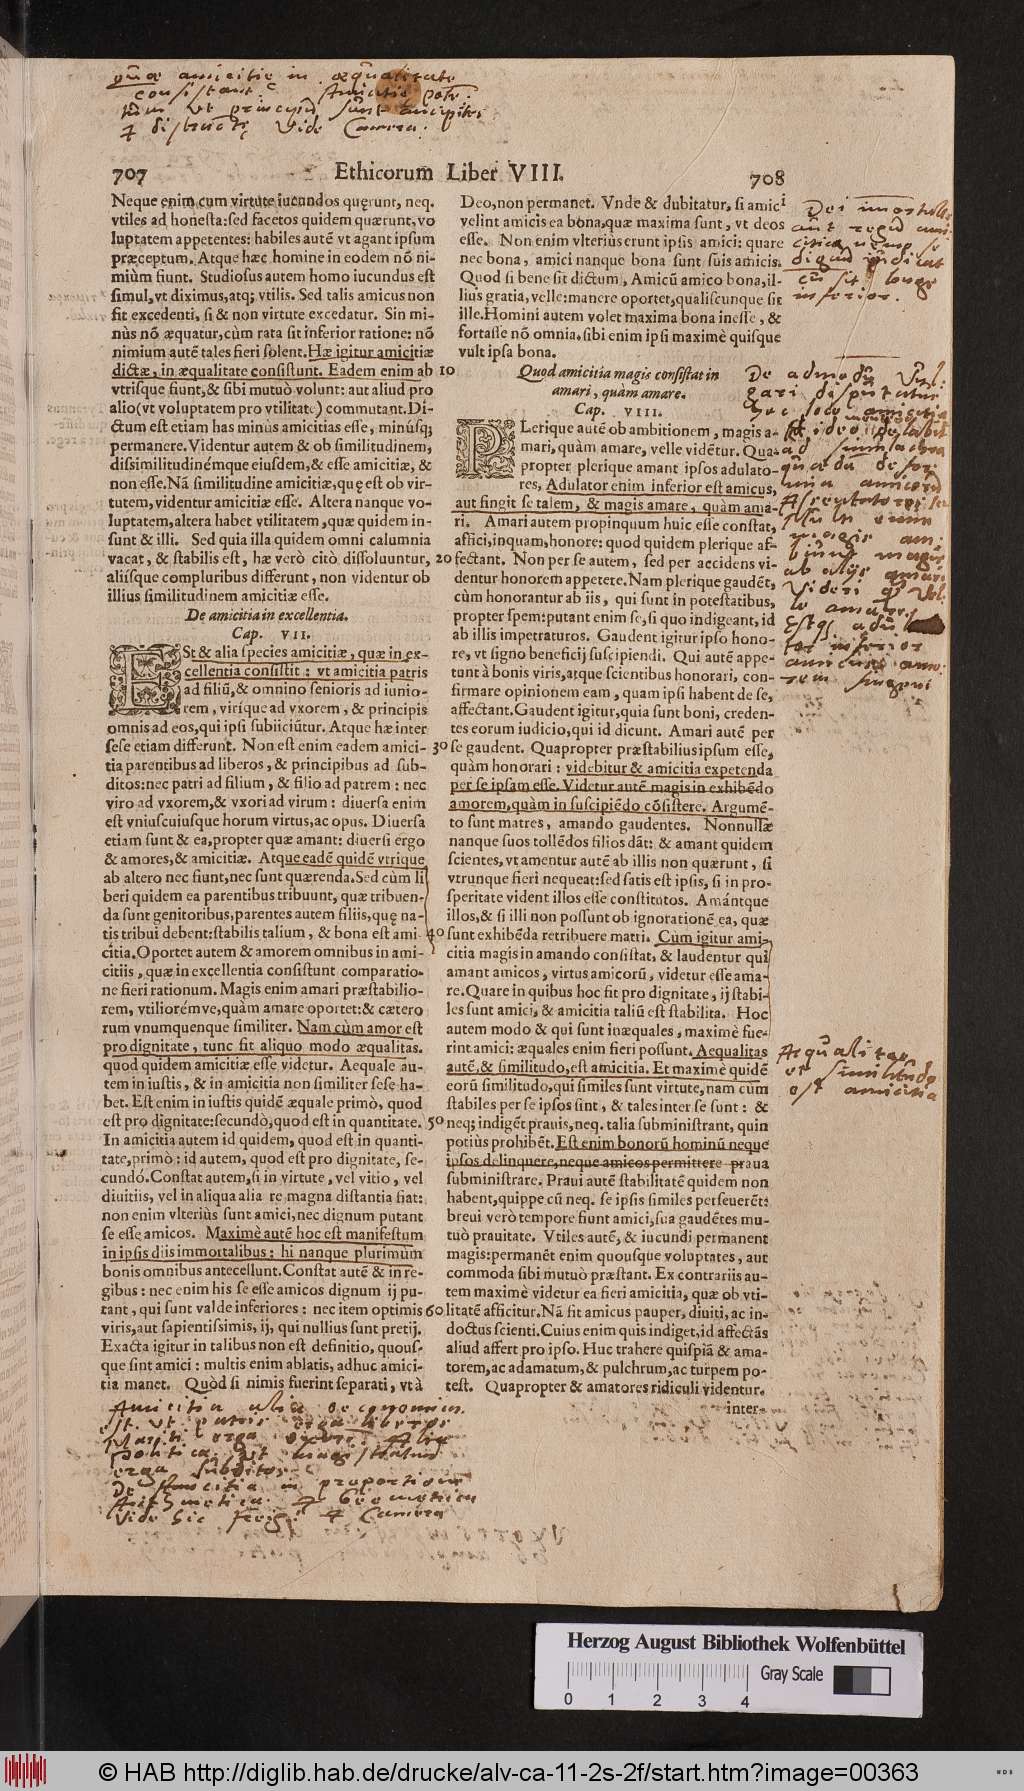 quæ amicitie in æqualitate
consistant.
Vide Camera:
707 Ethicorum Liber VIII. 708
Neque enim cum virtute iucundos quęrunt, neq.
vtiles ad honesta: sed facetos quidem quærunt, vo
luptatem appetentes: habiles autē vt agant ipsum
præceptum. Atque hæc homine in eodem nō ni-
miùm fiunt. Studiosus autem homo iucundus est
simul, vt diximus, atq; vtilis. Sed talis amicus non
fit excedenti, si & non virtute excedatur. Sin mi-
nùs nō æquatur, cùm rata sit inferior ratione: nō
nimium autē tales fieri solent. Hæ igitur amicitiæ
dictæ, in æqualitate consistunt. Eadem enim ab
vtrisque fiunt, & sibi mutuò volunt: aut aliud pro
alio (vt voluptatem pro vtilitate) commutant. Di-
ctum est etiam has minùs amicitias esse, minúsq;
permanere. Videntur autem & ob similitudinem,
dissimilitudinémque eiusdem, & esse amicitiæ, &
non esse. Nā similitudine amicitiæ, quę est ob vir-
tutem, videntur amicitiæ esse. Altera nanque vo-
luptatem, altera habet vtilitatem, quæ quidem in-
sunt & illi. Sed quia illa quidem omni calumnia
vacat, & stabilis est, hæ verò citò dissoluuntur,
aliísque compluribus differunt, non videntur ob
illius similitudinem amicitiæ esse.
De amicitia in excellentia.
Cap. VII.
ESt & alia species amicitiæ, quæ in ex-
cellentia consistit: vt amicitia patris
ad filiū, & omnino senioris ad iunio-
rem, virique ad vxorem, & principis
omnis ad eos, qui ipsi subiiciūtur. Atque hæ inter
sese etiam differunt. Non est enim eadem amici-
tia parentibus ad liberos, & principibus ad sub-
ditos: nec patri ad filium, & filio ad patrem: nec
viro ad vxorem, & vxori ad virum: diuersa enim
est vniuscuiusque horum virtus, ac opus. Diuersa
etiam sunt & ea, propter quæ amant: diuersi ergo
& amores, & amicitiæ. Atque eadē quidē vtrique
ab altero nec fiunt, nec sunt quærenda. Sed cùm li
beri quidem ea parentibus tribuunt, quæ tribuen-
da sunt genitoribus, parentes autem filiis, quę na-
tis tribui debent: stabilis talium, & bona est ami-
citia. Oportet autem & amorem omnibus in ami-
citiis, quæ in excellentia consistunt comparatio-
ne fieri rationum. Magis enim amari præstabilio-
rem, vtiliorémve, quàm amare oportet: & cætero
rum vnumquenque similiter. Nam cùm amor est
pro dignitate, tunc fit aliquo modo æqualitas.
quod quidem amicitiæ esse videtur. Aequale au-
tem in iustis, & in amicitia non similiter sese ha-
bet. Est enim in iustis quidē æquale primò, quod
est pro dignitate: secundò, quod est in quantitate.
In amicitia autem id quidem, quod est in quanti-
tate, primò: id autem, quod est pro dignitate, se-
cundó. Constat autem, si in virtute, vel vitio, vel
diuitiis, vel in aliqua alia re magna distantia fiat:
non enim vlteriùs sunt amici, nec dignum putant
se esse amicos. Maximè autē hoc est manifestum
in ipsis diis immortalibus: hi nanque plurimùm
bonis omnibus antecellunt. Constat autē & in re-
gibus: nec enim his se esse amicos dignum ij pu-
tant, qui sunt valde inferiores: nec item optimis
viris, aut sapientissimis, ij, qui nullius sunt pretij.
Exacta igitur in talibus non est definitio, quous-
que sint amici: multis enim ablatis, adhuc amici-
tia manet. Quòd si nimis fuerint separati, vt à
10
20
30
40
50
60
Deo, non permanet. Vnde & dubitatur, si amici
velint amicis ea bona, quæ maxima sunt, vt deos
esse. Non enim vlteriùs erunt ipsis amici: quare
nec bona, amici nanque bona sunt suis amicis.
Quod si bene sit dictum, Amicū amico bona, il-
lius gratia, velle: manere oportet, qualiscunque sit
ille. Homini autem volet maxima bona inesse, &
fortasse nō omnia. sibi enim ipsi maximè quisque
vult ipsa bona.
Quòd amicitia magis consistat in
amari, quàm amare.
Cap. VIII.
PLerique autē ob ambitionem, magis a-
mari, quàm amare, velle vidētur. Qua-
propter plerique amant ipsos adulato-
res, Adulator enim inferior est amicus,
aut fingit se talem, & magis amare, quàm ama-
ri. Amari autem propinquum huic esse constat,
affici, inquam, honore: quod quidem plerique af-
fectant. Non per se autem, sed per accidens vi-
dentur honorem appetere. Nam plerique gaudēt,
cùm honorantur ab iis, qui sunt in potestatibus,
propter spem: putant enim se, si quo indigeant, id
ab illis impetraturos. Gaudent igitur ipso hono-
re, vt signo beneficij suscipiendi. Qui autē appe-
tunt à bonis viris, atque scientibus honorari, con-
firmare opinionem eam, quam ipsi habent de se,
affectant. Gaudent igitur, quia sunt boni, creden-
tes eorum iudicio, qui id dicunt. Amari autē per
se gaudent. Quapropter præstabilius ipsum esse,
quàm honorari: videbitur & amicitia expetenda
per se ipsam esse. Videtur autē magis in exhibēdo
amorem, quàm in suscipiēdo cōsistere. Argumē-
to sunt matres, amando gaudentes. Nonnullæ
nanque suos tollēdos filios dāt: & amant quidem
scientes, vt amentur autē ab illis non quærunt, si
vtrunque fieri nequeat: sed satis est ipsis, si in pro-
speritate vident illos esse constitutos. Amántque
illos, & si illi non possunt ob ignorationē ea, quæ
sunt exhibēda retribuere matri. Cùm igitur ami-
citia magis in amando consistat, & laudentur qui
amant amicos, virtus amicorū, videtur esse ama-
re. Quare in quibus hoc fit pro dignitate, ij stabi-
les sunt amici, & amicitia taliū est stabilita. Hoc
autem modo & qui sunt inæquales, maximè fue-
rint amici: æquales enim fieri possunt. Aequalitas
autē, & similitudo, est amicitia. Et maximè quidē
eorū similitudo, qui similes sunt virtute, nam cùm
stabiles per se ipsos sint, & tales inter se sunt: &
neq; indigēt prauis, neq. talia subministrant, quin
potiùs prohibēt. Est enim bonorū hominū neque
ipsos delinquere, neque amicos permittere praua
subministrare. Praui autē stabilitatē quidem non
habent, quippe cū neq. se ipsis similes perseuerēt:
breui verò tempore fiunt amici, sua gaudētes mu-
tuò prauitate. Vtiles autē, & iucundi permanent
magis: permanēt enim quousque voluptates, aut
commoda sibi mutuò præstant. Ex contrariis au-
tem maximè videtur ea fieri amicitia, quæ ob vti-
litatē afficitur. Nā fit amicus pauper, diuiti, ac in-
doctus scienti. Cuius enim quis indiget, id affectās
aliud affert pro ipso. Huc trahere quispiā & ama-
torem, ac adamatum, & pulchrum, ac turpem po-
test. Quapropter & amatores ridiculi videntur.
inter-
Aequalitas
et similitudo
est amicitia
Amicitia alia
erga subditos
Vide hic
Herzog August Bibliothek Wolfenbüttel
Gray Scale
0 1 2 3 4
© HAB http://diglib.hab.de/drucke/alv-ca-11-2s-2f/start.htm?image=00363